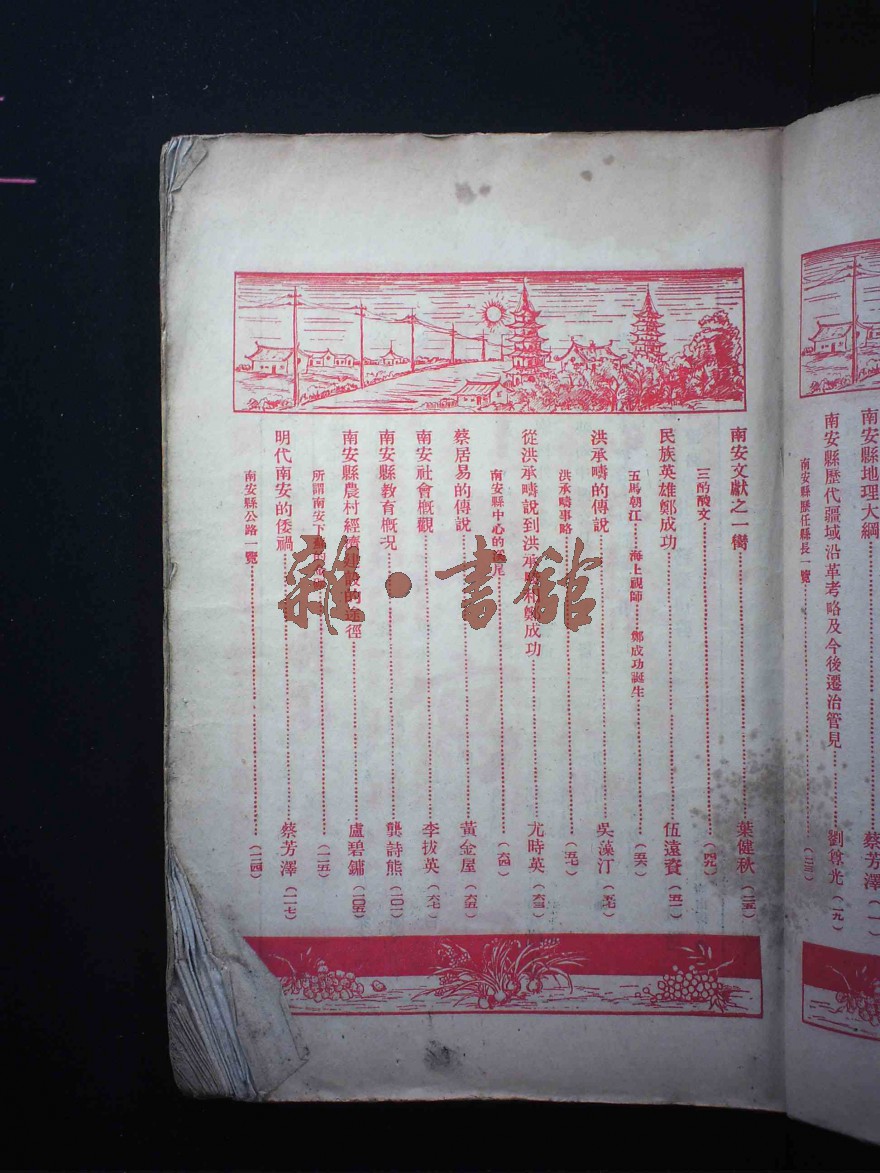 南安縣地理大綱……蔡芳澤(一)
南安縣歷代疆域沿革考略及今後遷治管見……劉尊光(一九)
南安縣歷任縣長一覽……(二三)
南安文獻之一臠……葉健秋(二五)
三酌酸文……(四九)
民族英雄鄭成功……伍遠資(五一)
五馬朝江……海上視師……鄭成功誕生……(五六)
洪承疇的傳說……吳藻汀(五七)
洪承疇事略……(五七)
從洪承疇說到洪承畯和鄭成功……尤時英(六三)
南安縣中心的溪尾……(六四)
蔡居易的傳說……黃金屋(六五)
南安社會概觀……李拔英(六七)
南安縣教育概况……龔詩熊(一〇一)
南安縣農村經濟建設的途徑……盧碧鏞(一〇五)
所謂南安下……(一一五)
明代南安的倭禍……蔡芳澤(一一七)
南安縣公路一覽……(一二四)
雜·書館